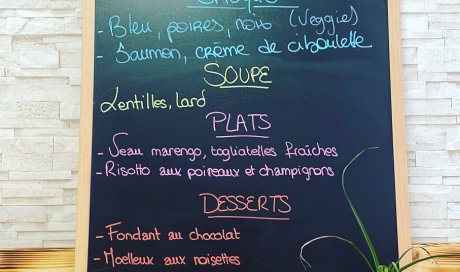 - Bleu, poires, noix (Veggie)
- Saumon, crème de ciboulette
SOUPE
Lentilles, lard
PLATS
- Veau marengo, tagliatelles fraîches
- Risotto aux poireaux et champignons
DESSERTS
- Fondant au chocolat
- Moelleux aux noisettes